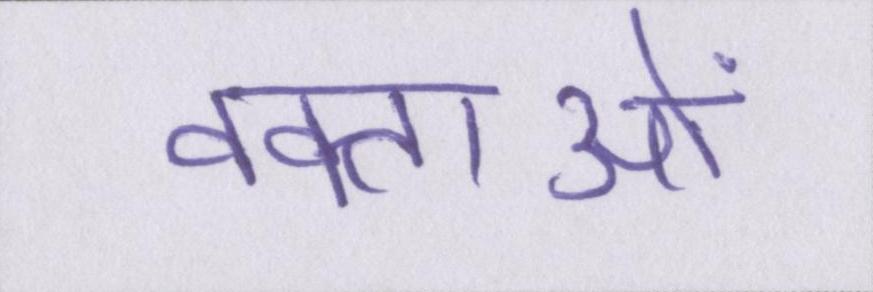 वक्ताओं